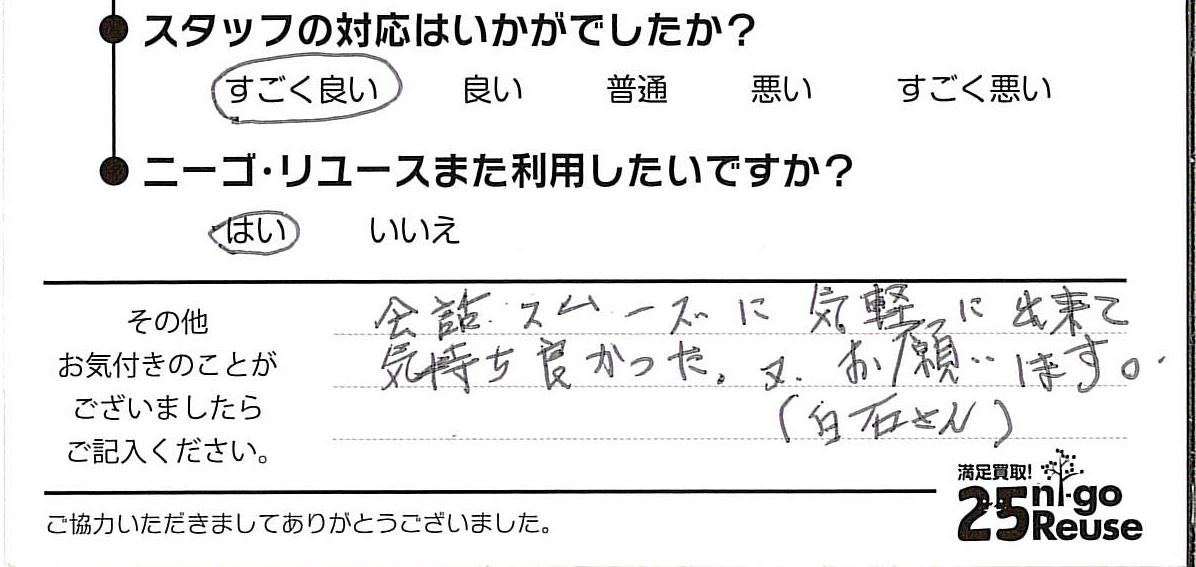 スタッフの対応はいかがでしたか？
すごく良い 良い 普通 悪い すごく悪い
ニーゴ・リユースまた利用したいですか？
はい いいえ
その他
お気付きのことが
ございましたら
ご記入ください。
会話スムーズに気軽に出来て
気持ち良かった。又、お願いします。
(白石さん)
満足買取!
25 ni-go
Reuse
ご協力いただきましてありがとうございました。